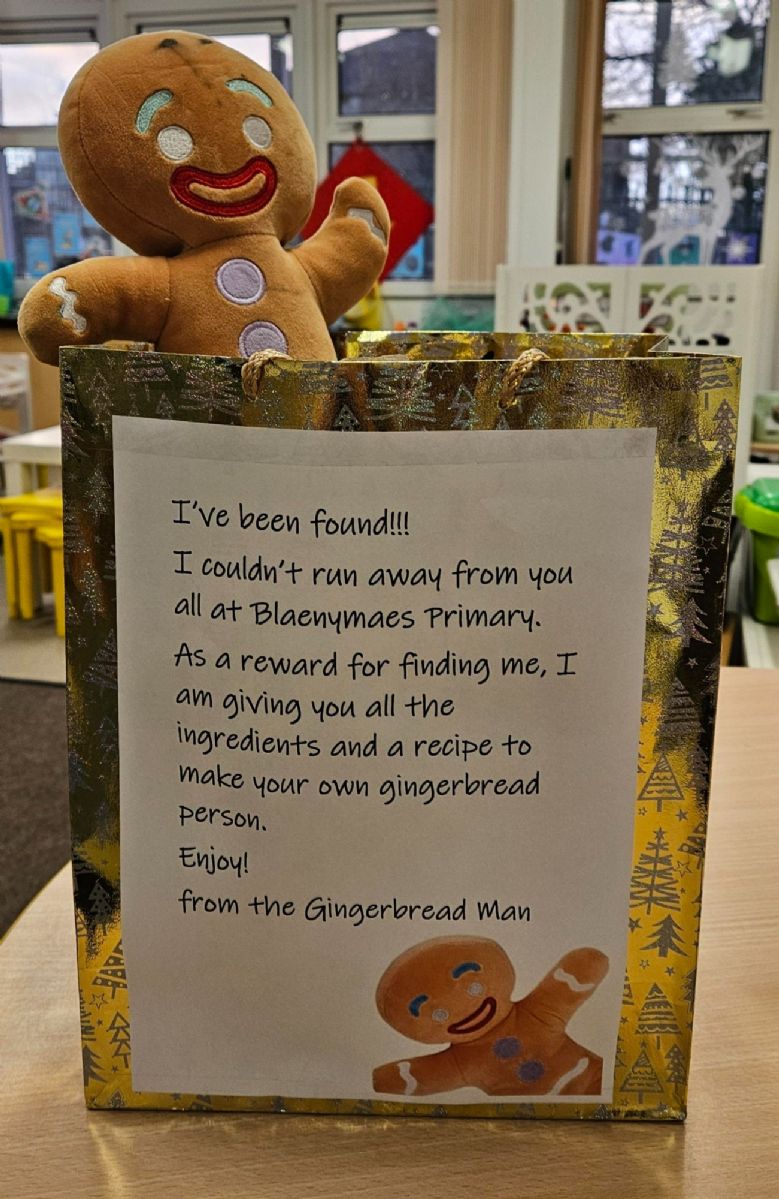 I've been found!!!
I couldn't run away from you
all at Blaenymaes Primary.
As a reward for finding me, I
am giving you all the
ingredients and a recipe to
make your own gingerbread
person.
Enjoy!
from the Gingerbread Man